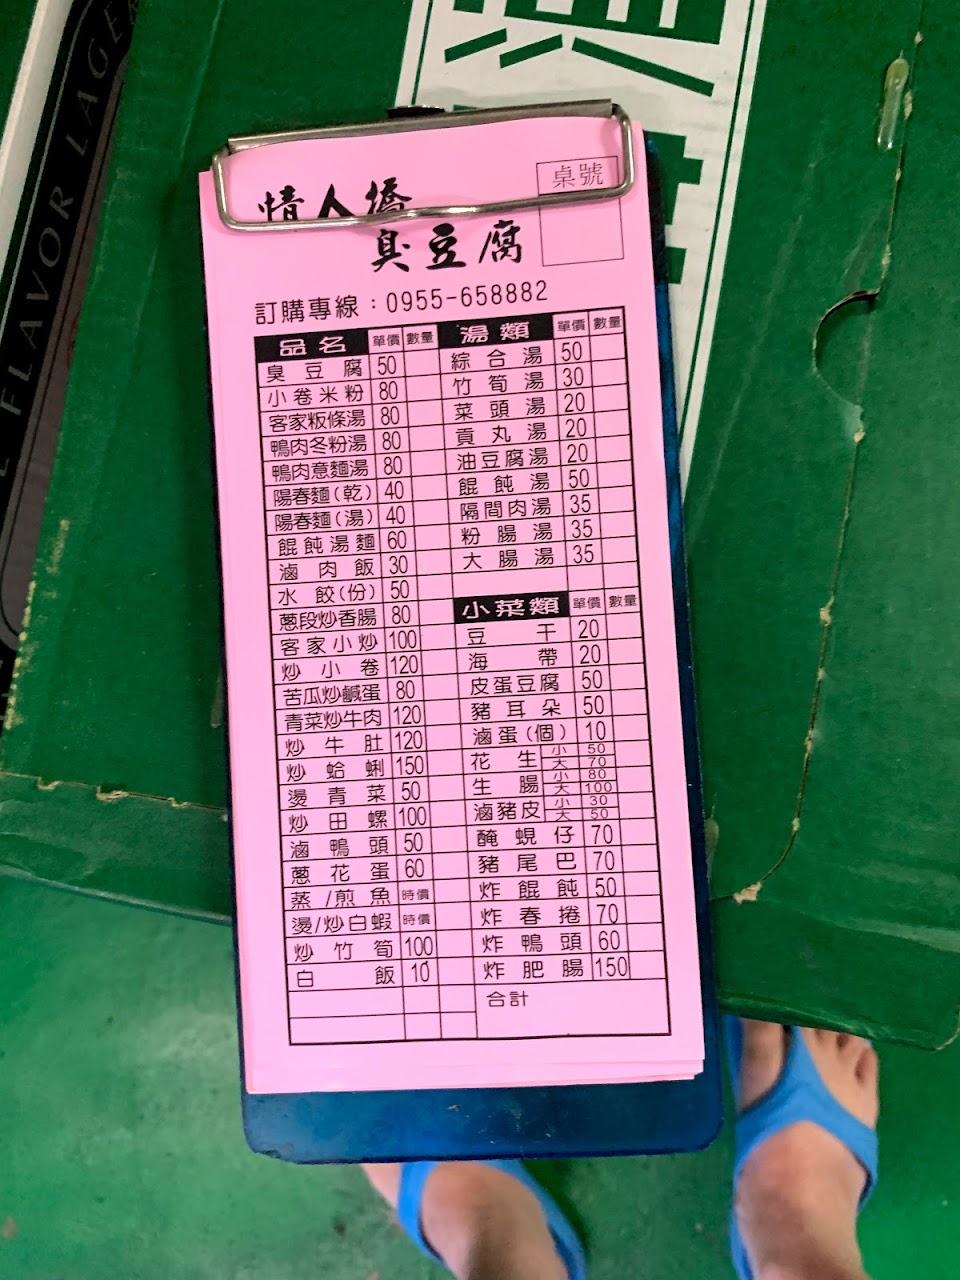 FLAVOR LAGER
桌號
情人橋
臭豆腐
訂購專線：0955-658882
品名 單價 數量
臭豆腐 50
小卷米粉 80
客家粄條湯 80
鴨肉冬粉湯 80
鴨肉意麵湯 80
陽春麵(乾) 40
陽春麵(湯) 40
餛飩湯麵 60
滷肉飯 30
水餃(份) 50
蔥段炒香腸 80
客家小炒 100
炒小卷 120
苦瓜炒鹹蛋 80
青菜炒牛肉 120
炒牛肚 120
炒蛤蜊 150
燙青菜 50
炒田螺 100
滷鴨頭 50
蔥花蛋 60
蒸/煎魚 時價
燙/炒白蝦 時價
炒竹筍 100
白飯 10
湯類 單價 數量
綜合湯 50
竹筍湯 30
菜頭湯 20
貢丸湯 20
油豆腐湯 20
餛飩湯 50
隔間肉湯 35
粉腸湯 35
大腸湯 35
小菜類 單價 數量
豆干 20
海帶 20
皮蛋豆腐 50
豬耳朵 50
滷蛋(個) 10
花生 小 50 大 70
生腸 小 80 大 100
滷豬皮 小 30 大 50
醃蜆仔 70
豬尾巴 70
炸餛飩 50
炸春捲 70
炸鴨頭 60
炸肥腸 150
合計